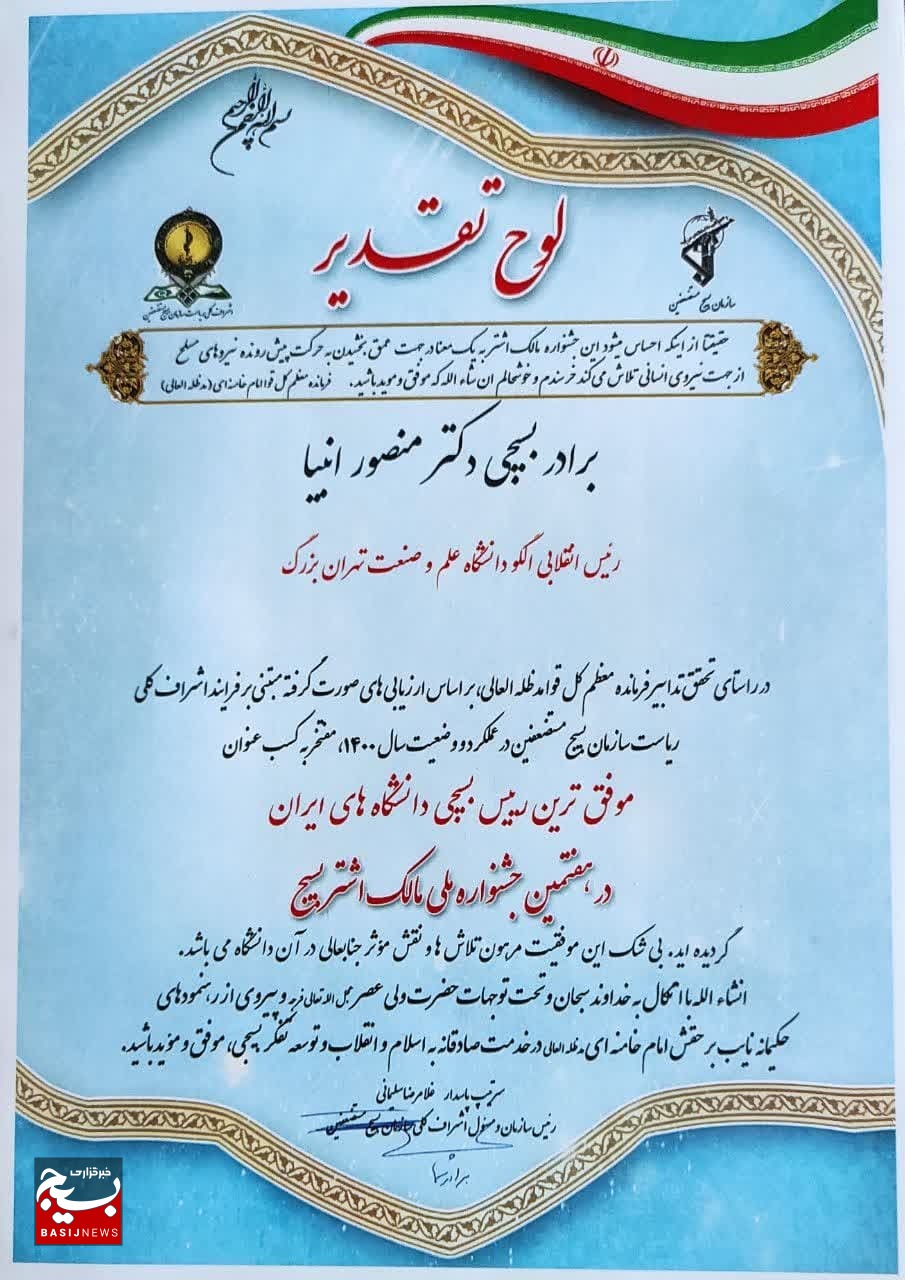 بسم الله الرحمن الرحیم
لوح تقدیر
سازمان بسیج مستضعفین
اشراف کلی ریاست سازمان بسیج مستضعفین
حقیقتا از اینکه احساس میشود این جشنواره مالک اشتر به یک معنا در جهت عمق بخشیدن به حرکت پیش رونده نیروهای مسلح
از جهت نیروی انسانی تلاش می کند خرسندم و خوشحالم ان شاء الله که موفق و موید باشید. فرمانده معظم کل قوا امام خامنه ای (مدظله العالی)
برادر بسیجی دکتر منصور انبیا
رئیس انقلابی الگو دانشگاه علم و صنعت تهران بزرگ
در راستای تحقق تدابیر فرمانده معظم کل قوا مدظله العالی، بر اساس ارزیابی های صورت گرفته مبتنی بر فرایند اشراف کلی
ریاست سازمان بسیج مستضعفین در عملکرد و وضعیت سال ۱۴۰۰، مفتخر به کسب عنوان
موفق ترین رییس بسیجی دانشگاه های ایران
در هفتمین جشنواره ملی مالک اشتر بسیج
گردیده اید. بی شک این موفقیت مرهون تلاش ها و نقش مؤثر جنابعالی در آن دانشگاه می باشد.
انشاء الله با اتکال به خداوند سبحان و تحت توجهات حضرت ولی عصر عجل الله تعالی فرجه و پیروی از رهنمودهای
حکیمانه نایب بر حقش امام خامنه ای مدظله العالی در خدمت صادقانه به اسلام و انقلاب و توسعه تفکر بسیجی، موفق و مؤید باشید.
سرتیپ پاسدار غلامرضا سلیمانی
رئیس سازمان و مسئول اشراف کلی سازمان بسیج مستضعفین
خبرگزاری
بسیج
BASIJNEWS